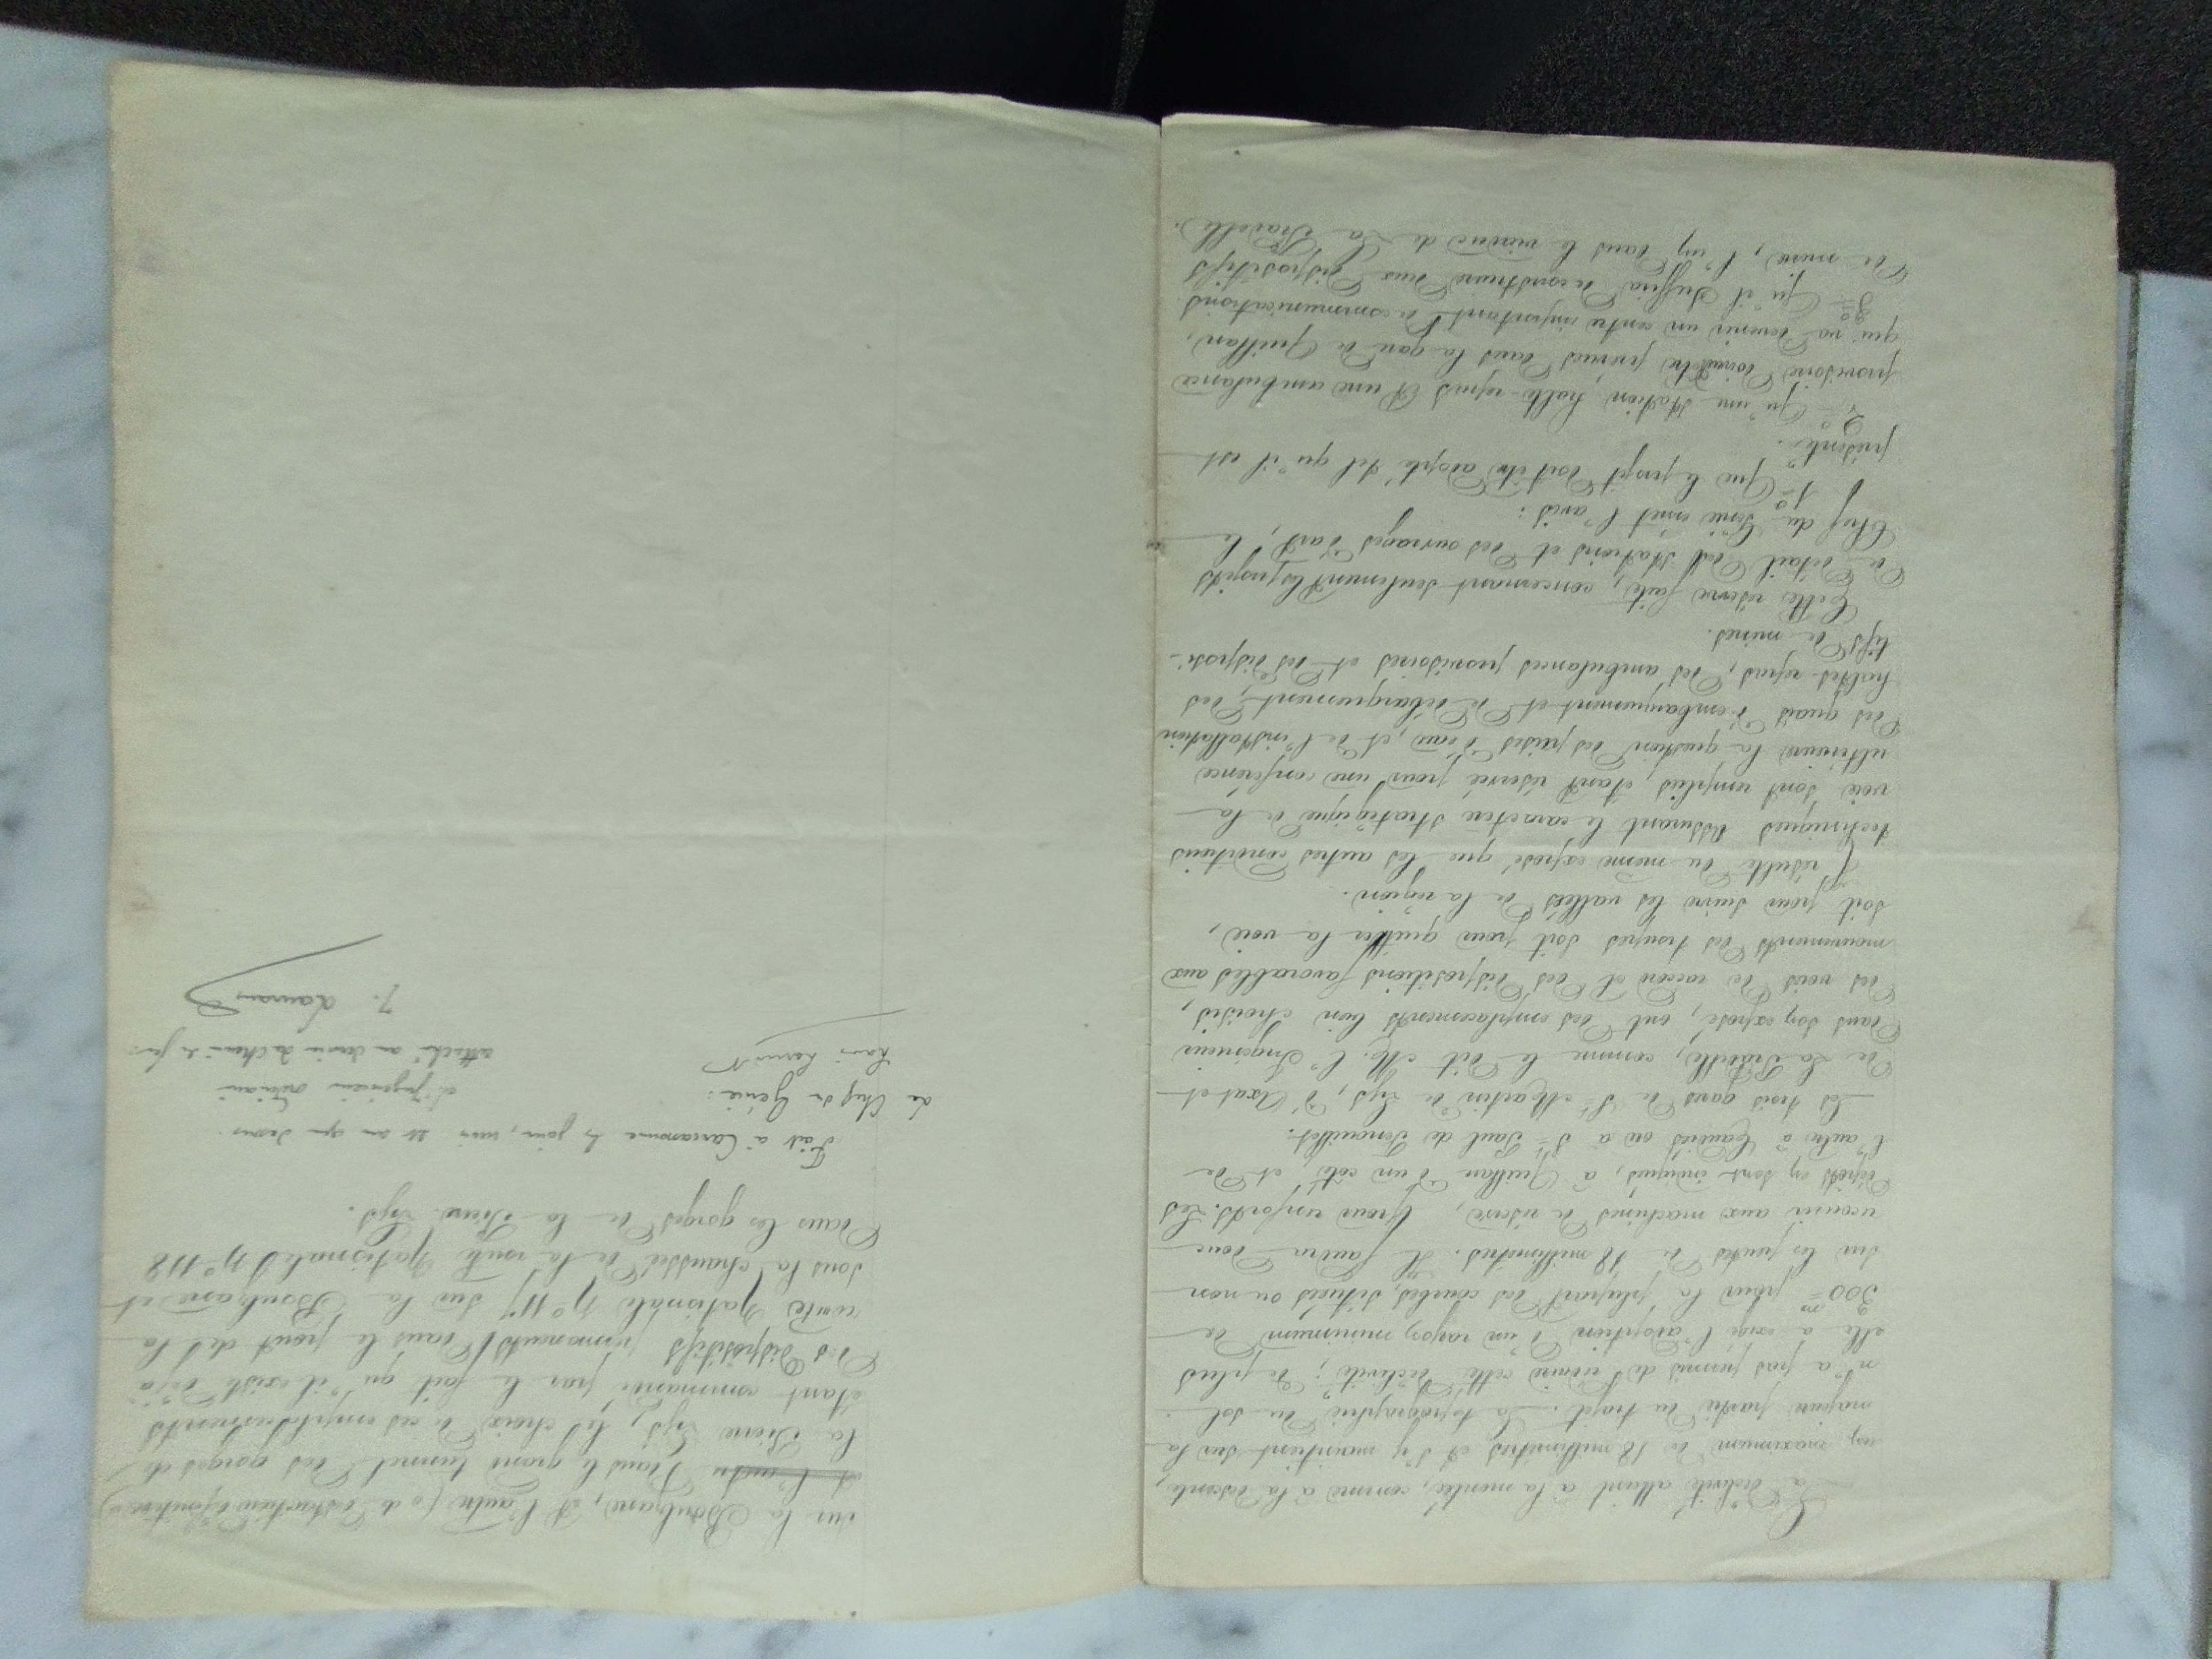 La déclivité atteint à la montée, comme à la descente,
un maximum de 18 millimètres et s'y maintient sur la
majeure partie du trajet. La topographie du sol
n'a pas permis de réduire cette déclivité; de plus
elle a exigé l'adoption d'un rayon minimum de
300m pour la plupart des courbes, situées ou non
sur les pentes de 18 millimètres. Il faudra donc
recourir aux machines de réserve, pour renforts. Les
dépôts en sont indiqués, à Quillan d'un côté, et de
l'autre à Caudiès ou à St Paul de Fenouillet.
Les trois gares de St Martin de Lys, d'Axat et
de La Pradelle, comme le dit M. l'Ingénieur
dans son exposé, ont des emplacements bien choisis,
des voies de raccord et des dispositions favorables aux
mouvements des troupes soit pour quitter la voie,
soit pour suivre les vallées de la région.
Il résulte du même exposé que les autres conditions
techniques assurant le caractère stratégique de la
voie sont remplies, étant réservée pour une conférence
ultérieure la question des prises d'eau, et de l'installation
des quais d'embarquement et de débarquement, des
haltes-repas, des ambulances provisoires et des disposi-
tifs de mines.
Cette réserve faite, concernant seulement les projets
de détail des stations et des ouvrages d'art, le
Chef du Génie émet l'avis:
1o Que le projet doit être adopté tel qu'il est
présenté.
2o Qu'une station halte-repas et une ambulance
provisoire doivent être prévues dans la gare de Quillan,
qui va devenir un centre important de communications.
3o Qu'il suffira de construire deux dispositifs
de mine, l'un dans le viaduc de La Pradelle
sur la Boulzane, et l'autre (de destruction définitive)
et l'autre dans le grand tunnel des gorges de
la Pierre Lys, le choix de ces emplacements
étant commandé par le fait qu'il existe déjà
des dispositifs permanents dans le pont de la
route Nationale No 117 sur la Boulzane et
sous la chaussée de la route Nationale No 118
dans les gorges de la Pierre Lys.
Fait à Carcassonne les jour, mois et an que dessus.
Le Chef du Génie:
L'Ingénieur ordinaire
attaché au service du chemin de fer:
J.